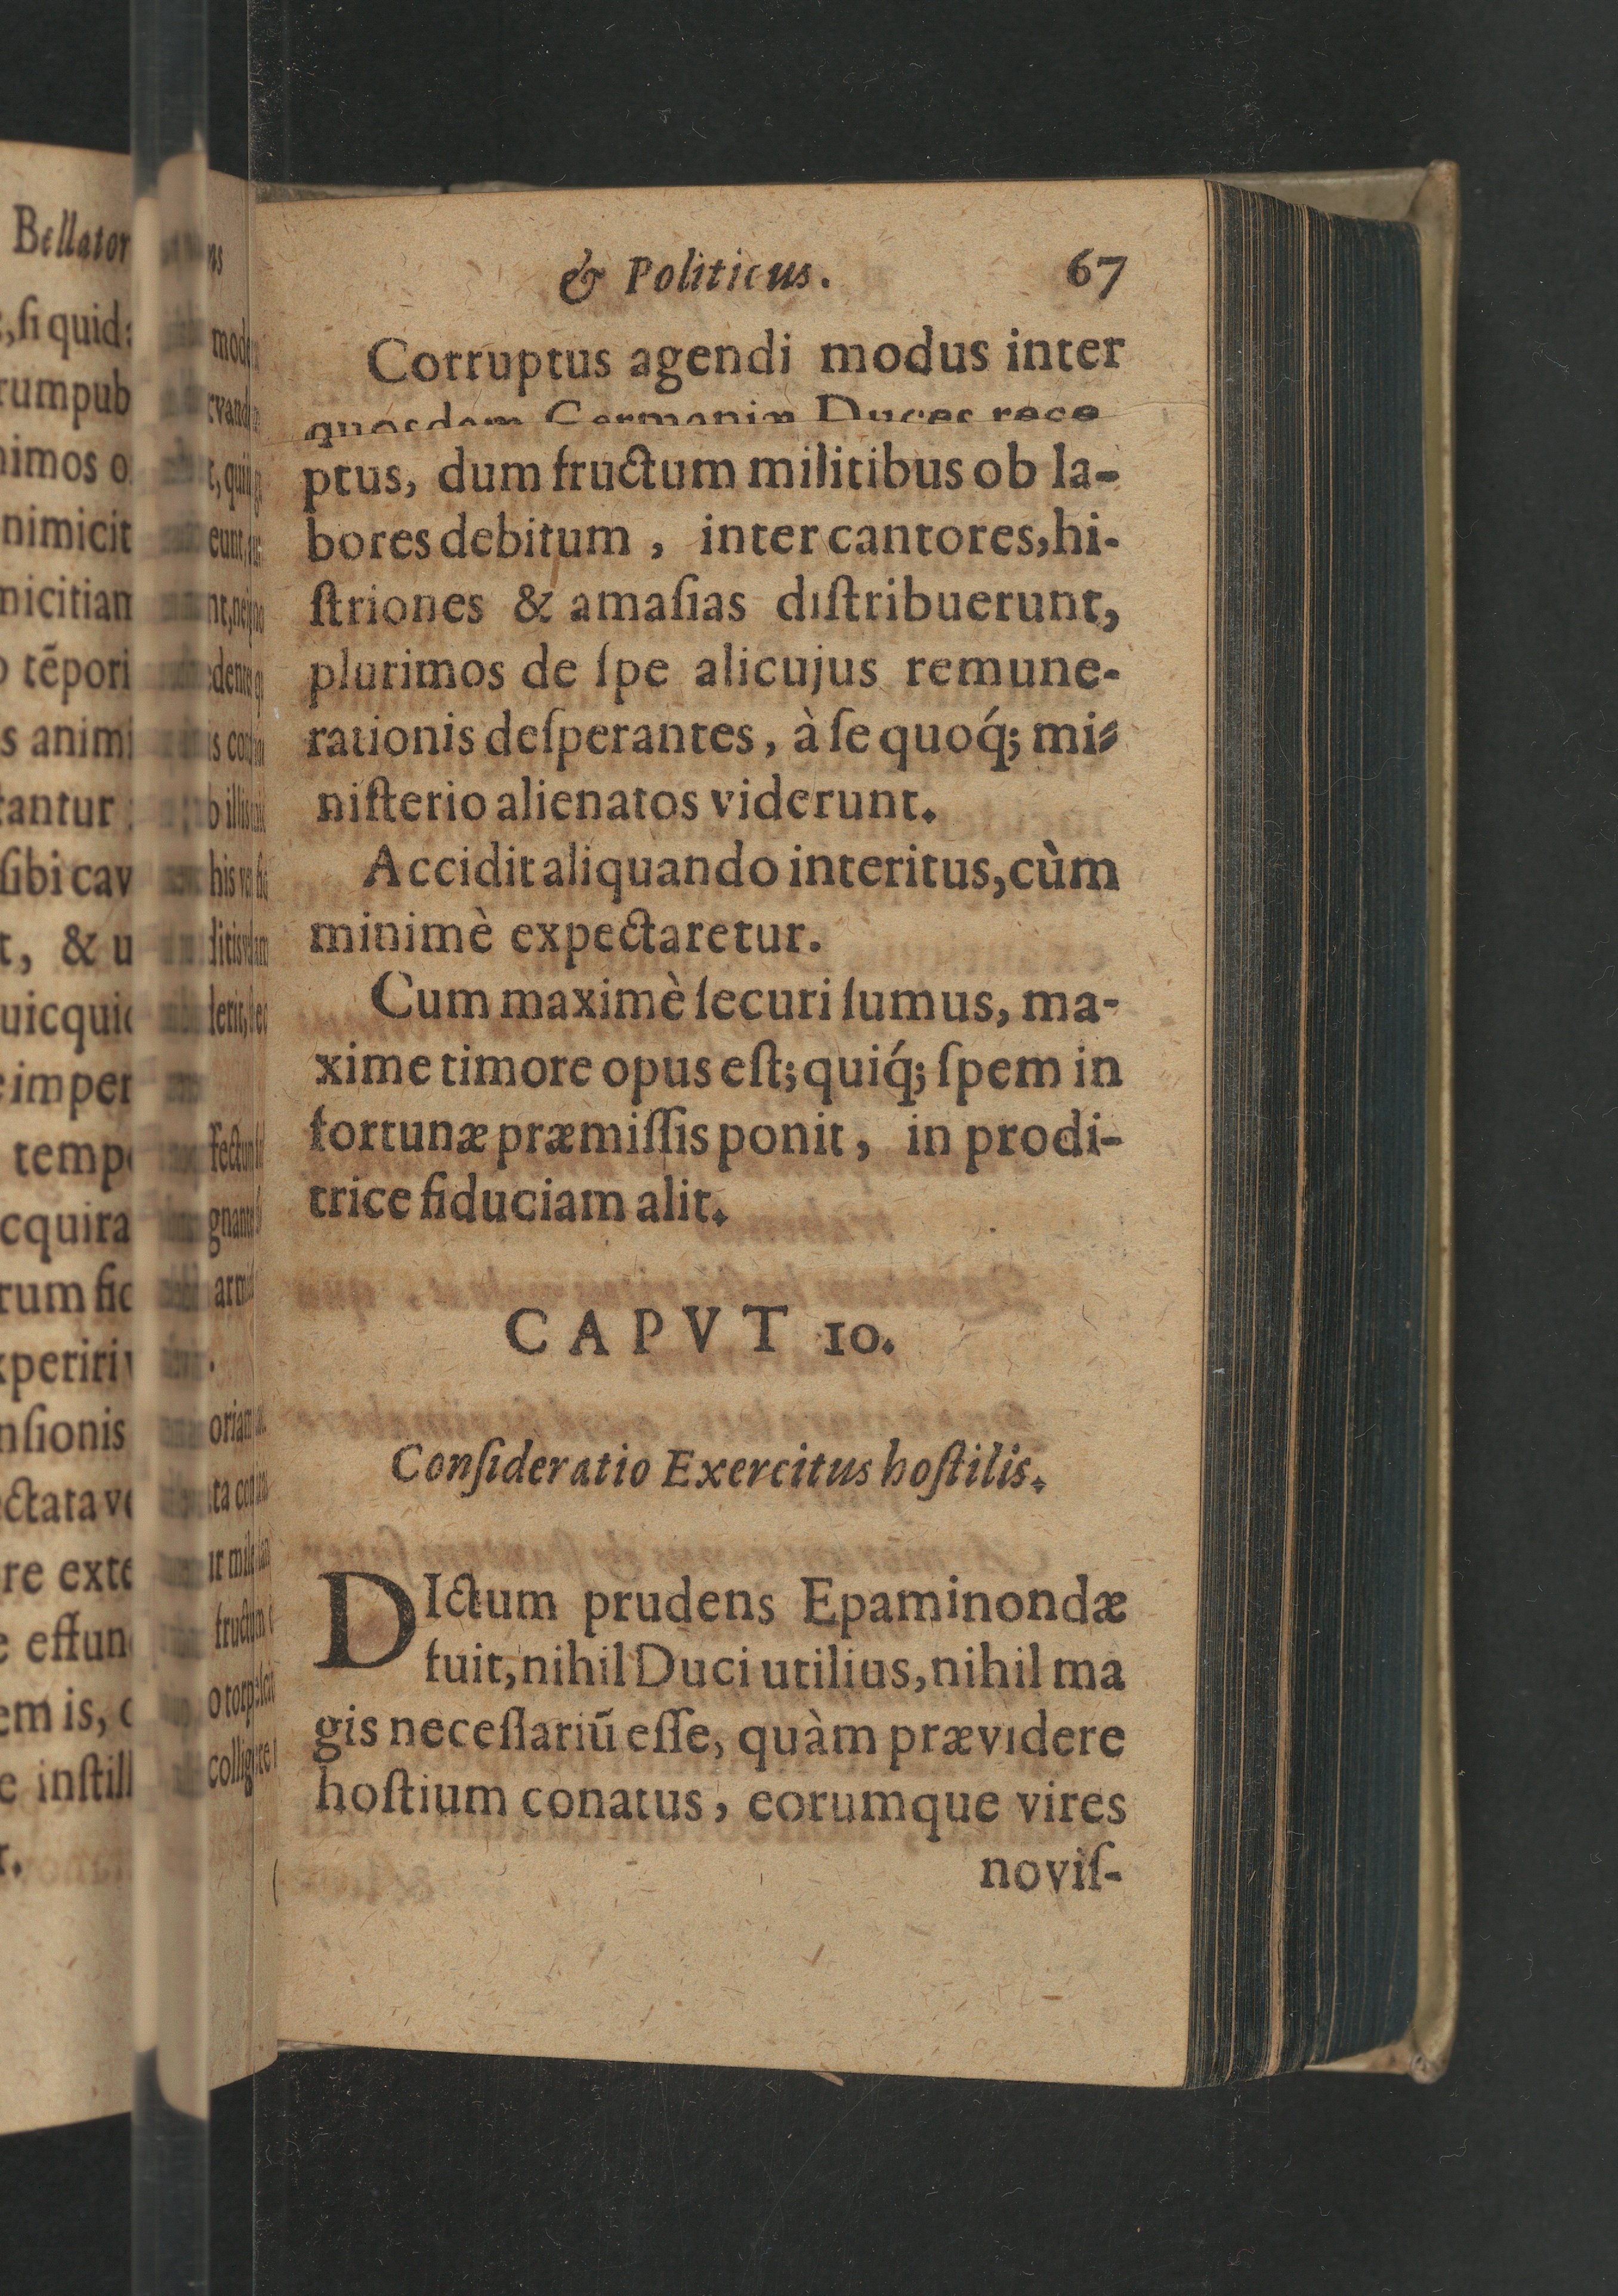 & Politicus. 67
Corruptus agendi modus inter
quosdam Germaniæ Duces rece
ptus, dum fructum militibus ob la-
bores debitum, inter cantores, hi-
ſtriones & amaſias diſtribuerunt,
plurimos de ſpe alicujus remune-
rationis deſperantes, à ſe quoq́; mi-
niſterio alienatos viderunt.
Accidit aliquando interitus, cùm
minimè expectaretur.
Cum maximè ſecuri ſumus, ma-
xime timore opus eſt; quiq́; ſpem in
fortunæ præmiſſis ponit, in prodi-
trice fiduciam alit.
CAPVT 10.
Conſideratio Exercitus hoſtilis.
DIctum prudens Epaminondæ
fuit, nihil Duci utilius, nihil ma
gis neceſſariũ eſſe, quàm prævidere
hoſtium conatus, eorumque vires
noviſ-